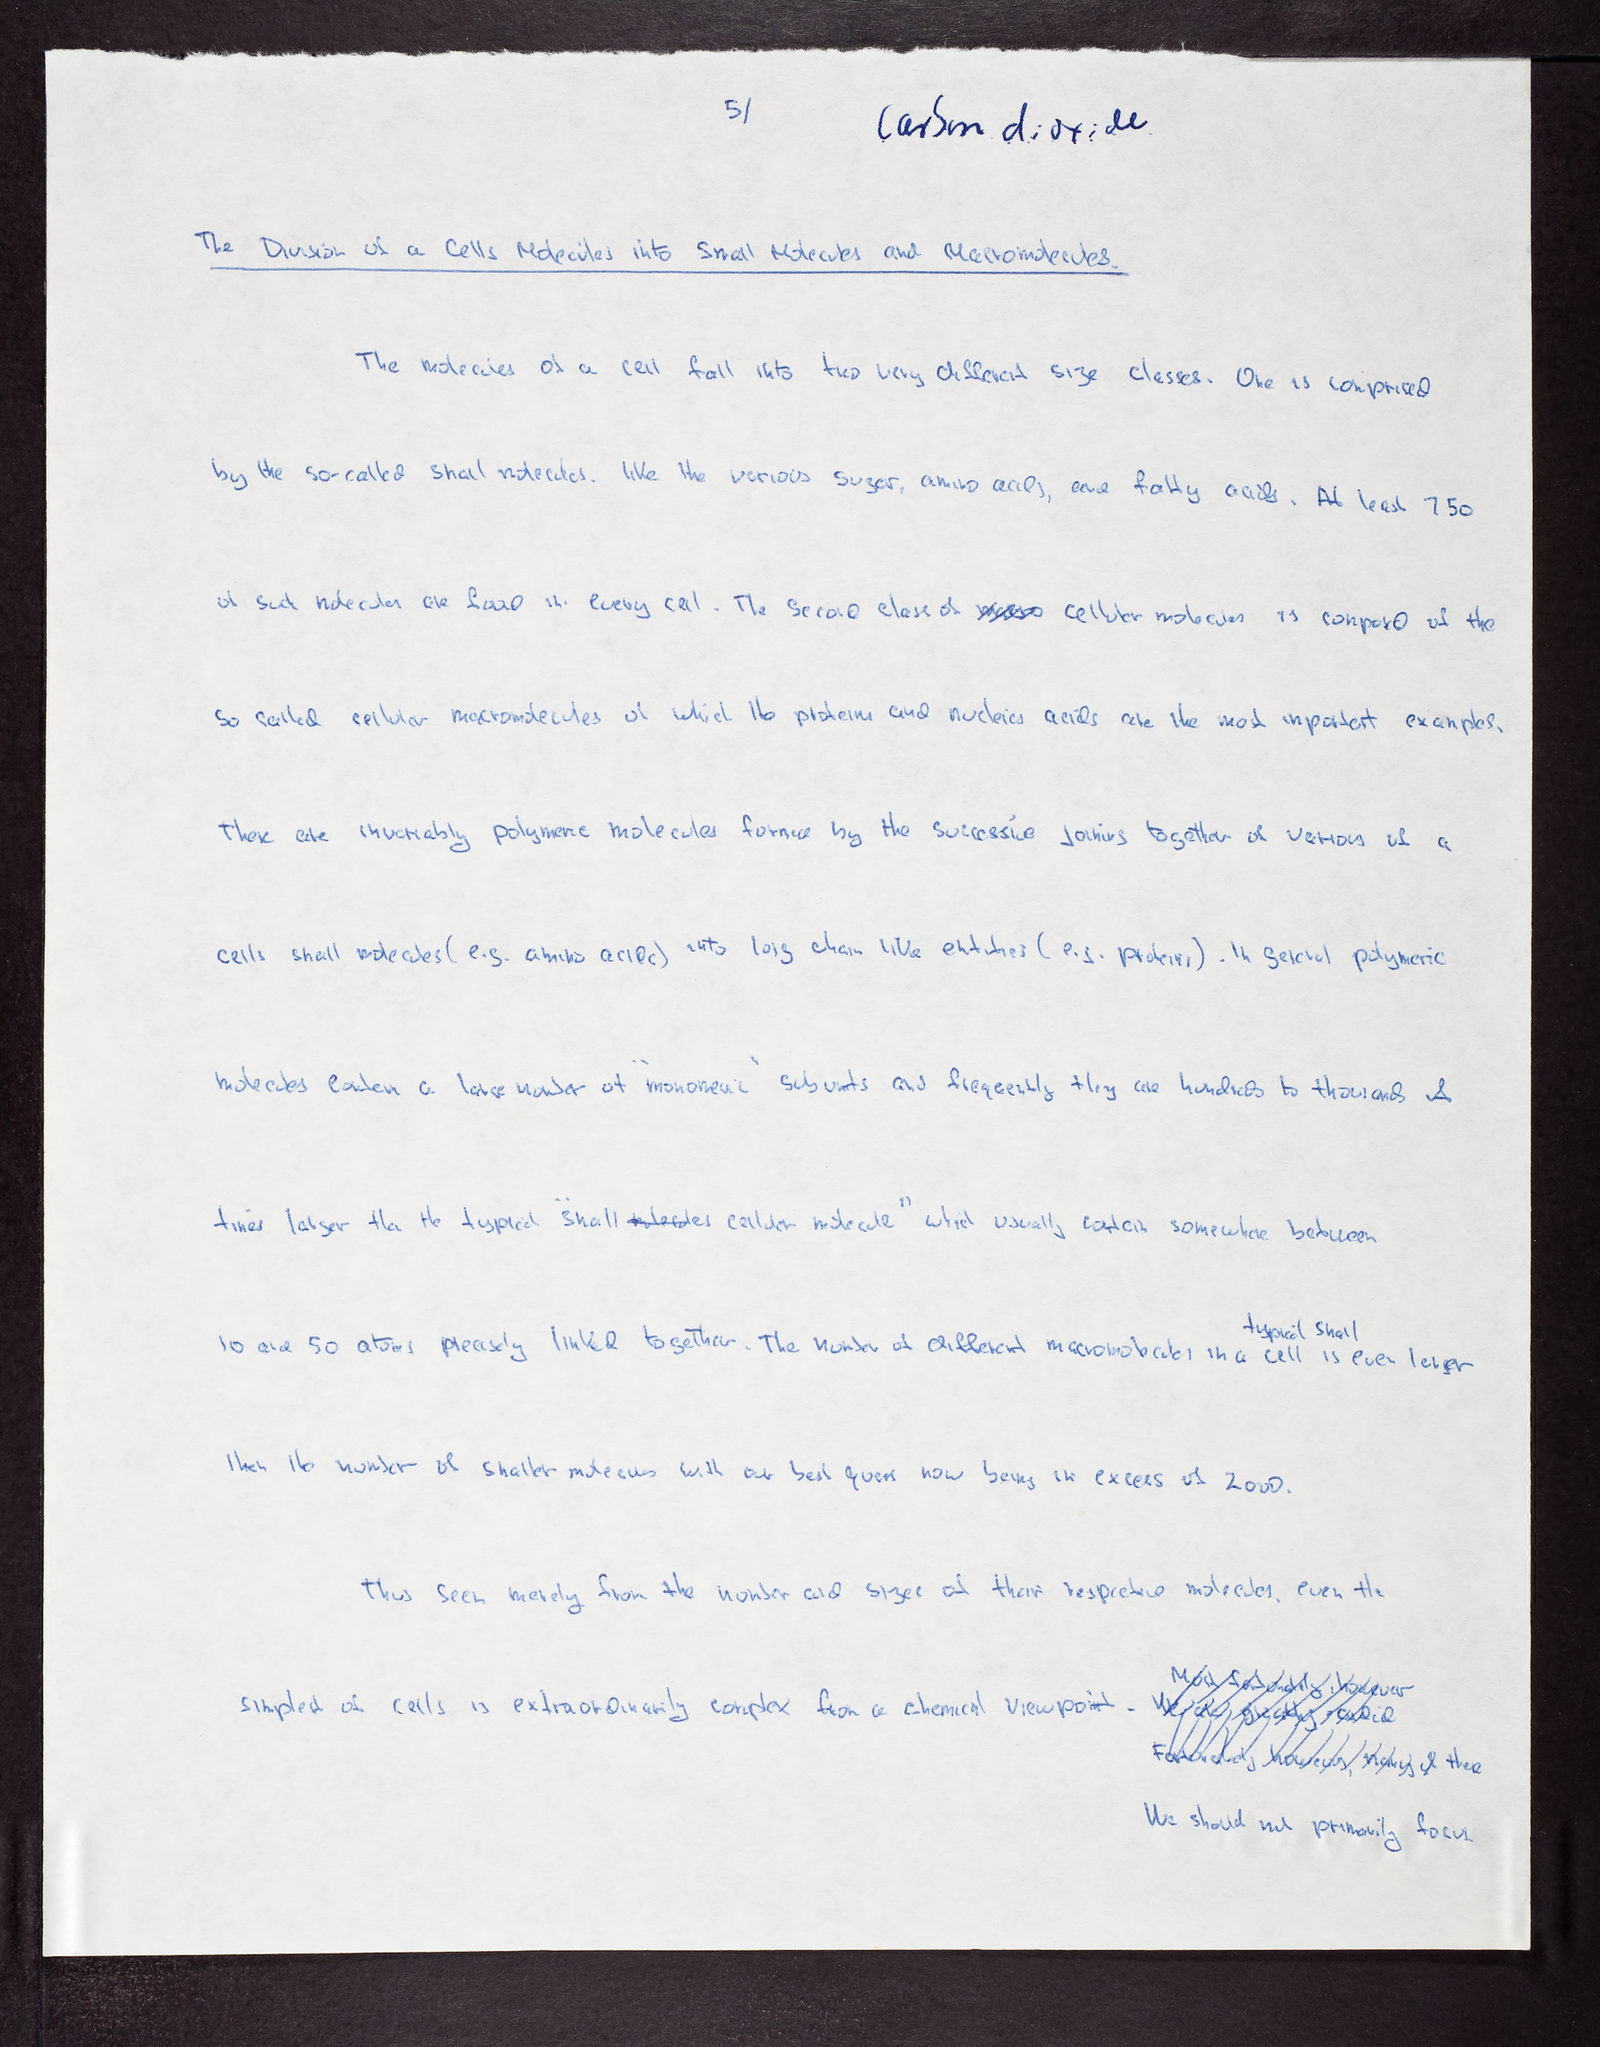 5/ Carbon dioxide
The Division of a Cells Molecules into Small Molecules and Macromolecules.
The molecules of a cell fall into two very different size classes. One is comprised
by the so-called small molecules. like the various sugar, amino acids, and fatty acids. At least 750
of such molecules are found in every cell. The second class of cellular molecules is composed of the
so called cellular macromolecules of which the proteins and nucleics acids are the most important examples.
These are invariably polymeric molecules formed by the successive joining together of various of a
cells small molecules (e.g. amino acids) into long chain like entities (e.g. proteins). In general polymeric
molecules contain a large number of "monomeric" subunits and frequently they are hundreds to thousands of
times larger than the typical "small molecules cellular molecule" which usually contain somewhere between
10 and 50 atoms precisely linked together. The number of different macromolecules in a typical small cell is even larger
then the number of smaller molecules with our best guess now being in excess of 2000.
Thus seen merely from the number and sizes of their respective molecules, even the
simplest of cells is extraordinarily complex from a chemical viewpoint.
Most fortunately, however
We are greatly
Fortunately however, many of these
We should not primarily focus